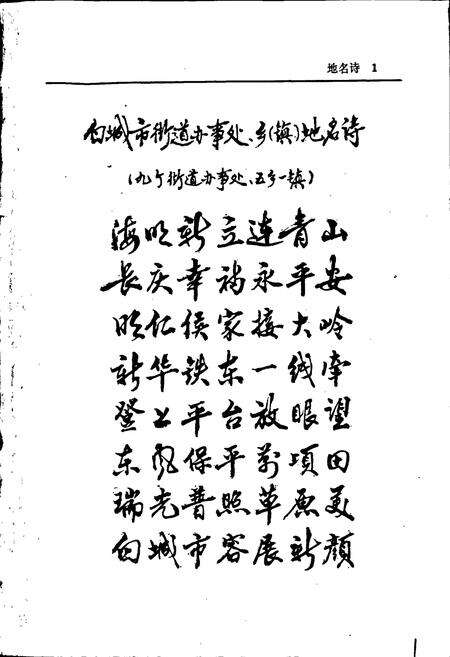 地名诗 1
白城市街道办事处、乡(镇)地名诗
(九个街道办事处、五乡一镇)
海明新立连青山
长庆幸福永平安
明仁侯家接大岭
新华铁东一线牵
登上平台放眼望
东风保平万项田
瑞光普照草原美
白城市容展新颜